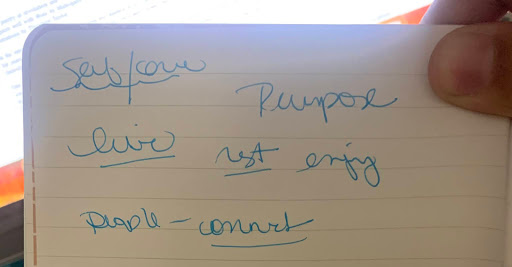 Self/care
Purpose
live rest enjoy
people - connect